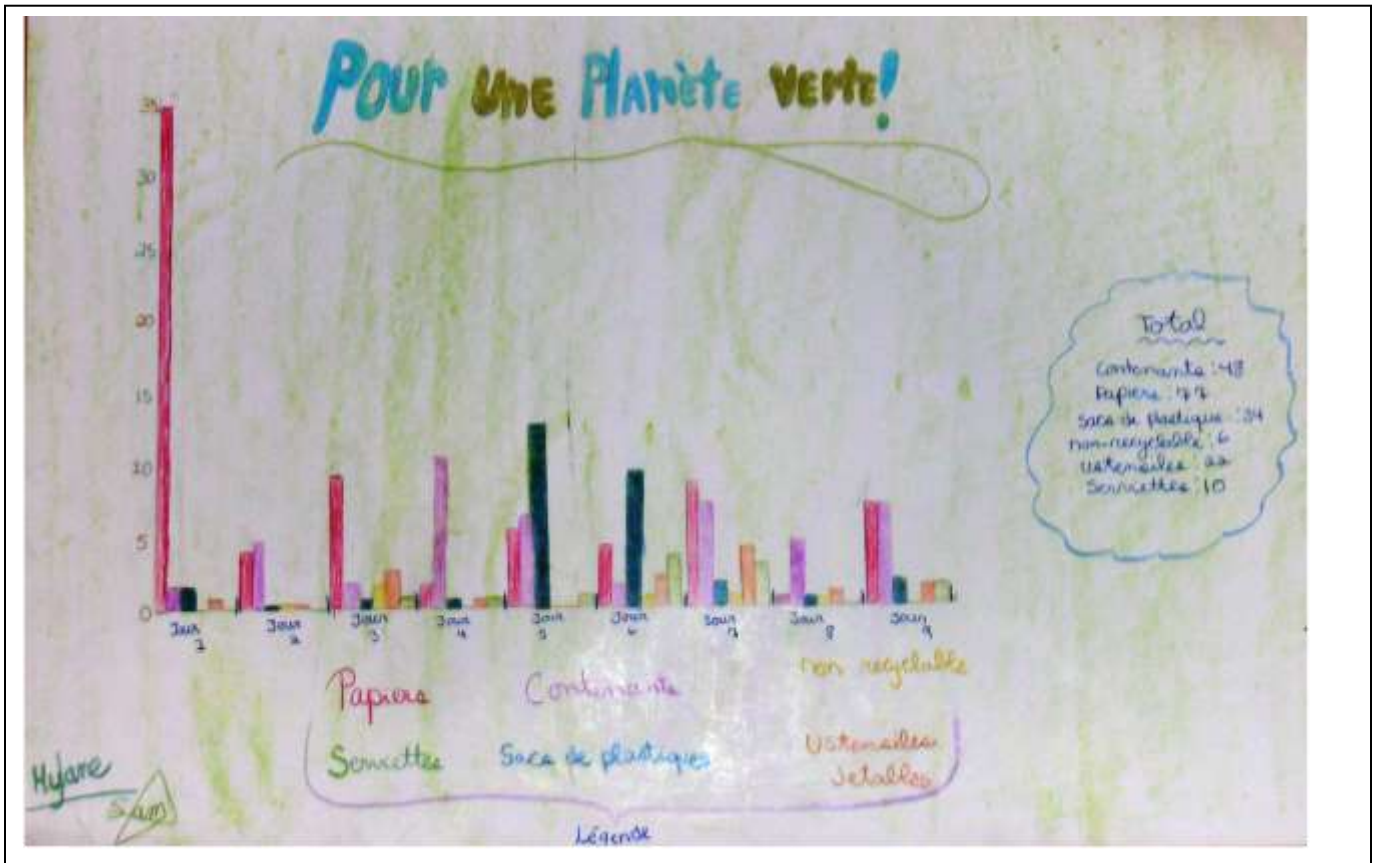 Pour une Planète verte!
35
30
25
20
15
10
5
0
Jour 1
Jour 2
Jour 3
Jour 4
Jour 5
Jour 6
Jour 7
Jour 8
Jour 9
Total
Contenants : 48
Papiers : 77
Sacs de plastique : 34
non-recyclable : 6
Ustensiles : 22
Serviettes : 10
Papiers
Contenants
non recyclable
Serviettes
Sacs de plastiques
Ustensiles
Jetables
Légende
Sam